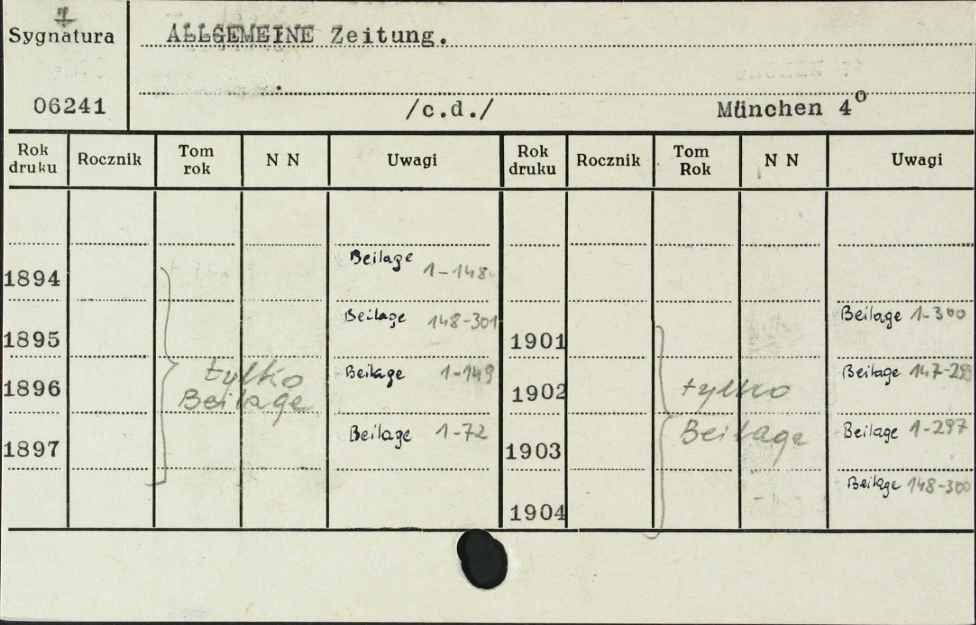 Sygnatura
ALLGEMEINE Zeitung.
06241
/c.d./
München 4º
Rok druku Rocznik Tom rok N N Uwagi Rok druku Rocznik Tom Rok N N Uwagi
1894 Beilage 1-148
1895 Beilage 148-301
1896 Beilage 1-149
1897 Beilage 1-72
tylko
Beilage
1901 Beilage 1-300
1902 Beilage
1903 Beilage 1-297
1904 Beilage 148-300
tylko
Beilage